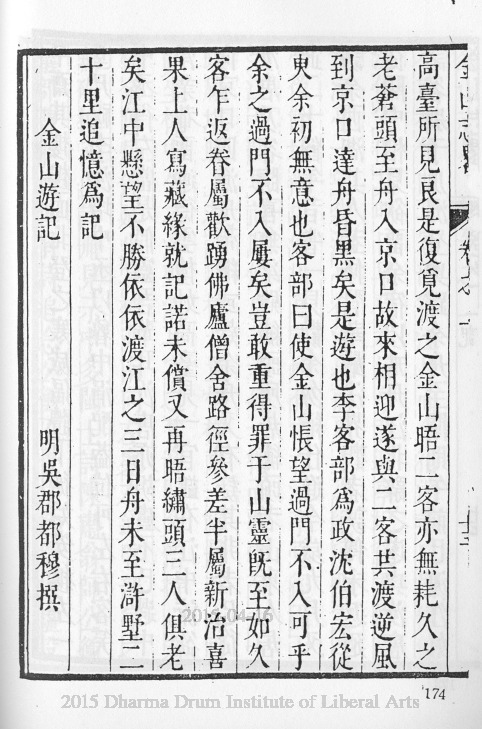 金山志畧
高臺所見良是復覓渡之金山晤二客亦無耗久之
老蒼頭至舟入京口故來相迎遂與二客共渡逆風
到京口達舟昏黑矣是遊也李客部為政沈伯宏從
臾余初無意也客部曰使金山悵望過門不入可乎
余之過門不入屢矣豈敢重得罪于山靈旣至如久
客乍返眷屬歡踴佛廬僧舍路徑參差半屬新治喜
果上人寫藏緣就記諾未償又再晤繡頭三人俱老
矣江中懸望不勝依依渡江之三日舟未至滸墅二
十里追憶爲記
金山遊記
明吳郡都穆撰
174
2015 Dharma Drum Institute of Liberal Arts